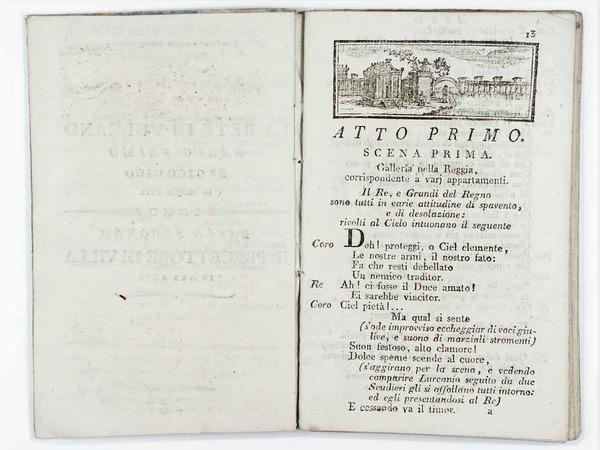 13
ATTO PRIMO.
SCENA PRIMA.
Galleria nella Reggia,
corrispondente a varj appartamenti.
Il Re, e Grandi del Regno
sono tutti in varie attitudine di spavento,
e di desolazione:
rivolti al Cielo intuonano il seguente
Coro Deh! proteggi, o Ciel clemente,
Le nostre armi, il nostro fato:
Fa che resti debellato
Un nemico traditor.
Re Ah! ci fosse il Duce amato!
Ei sarebbe vincitor.
Coro Ciel pietà!...
Ma qual si sente
(s'ode improvviso eccheggiar di voci giu-
live, e suono di marziali stromenti)
Suon festoso, alto clamore!
Dolce speme scende al cuore,
(s'aggirano per la scena, e vedendo
comparire Lurcanio seguito da due
Scudieri gli si affollano tutti intorno:
ed egli presentandosi al Re)
E cessando va il timor. a
LA RETE DI VULCANO
BALLO PRIMO
EROICOMICO
BALLO SECONDO
IL PRECETTORE DI VILLA